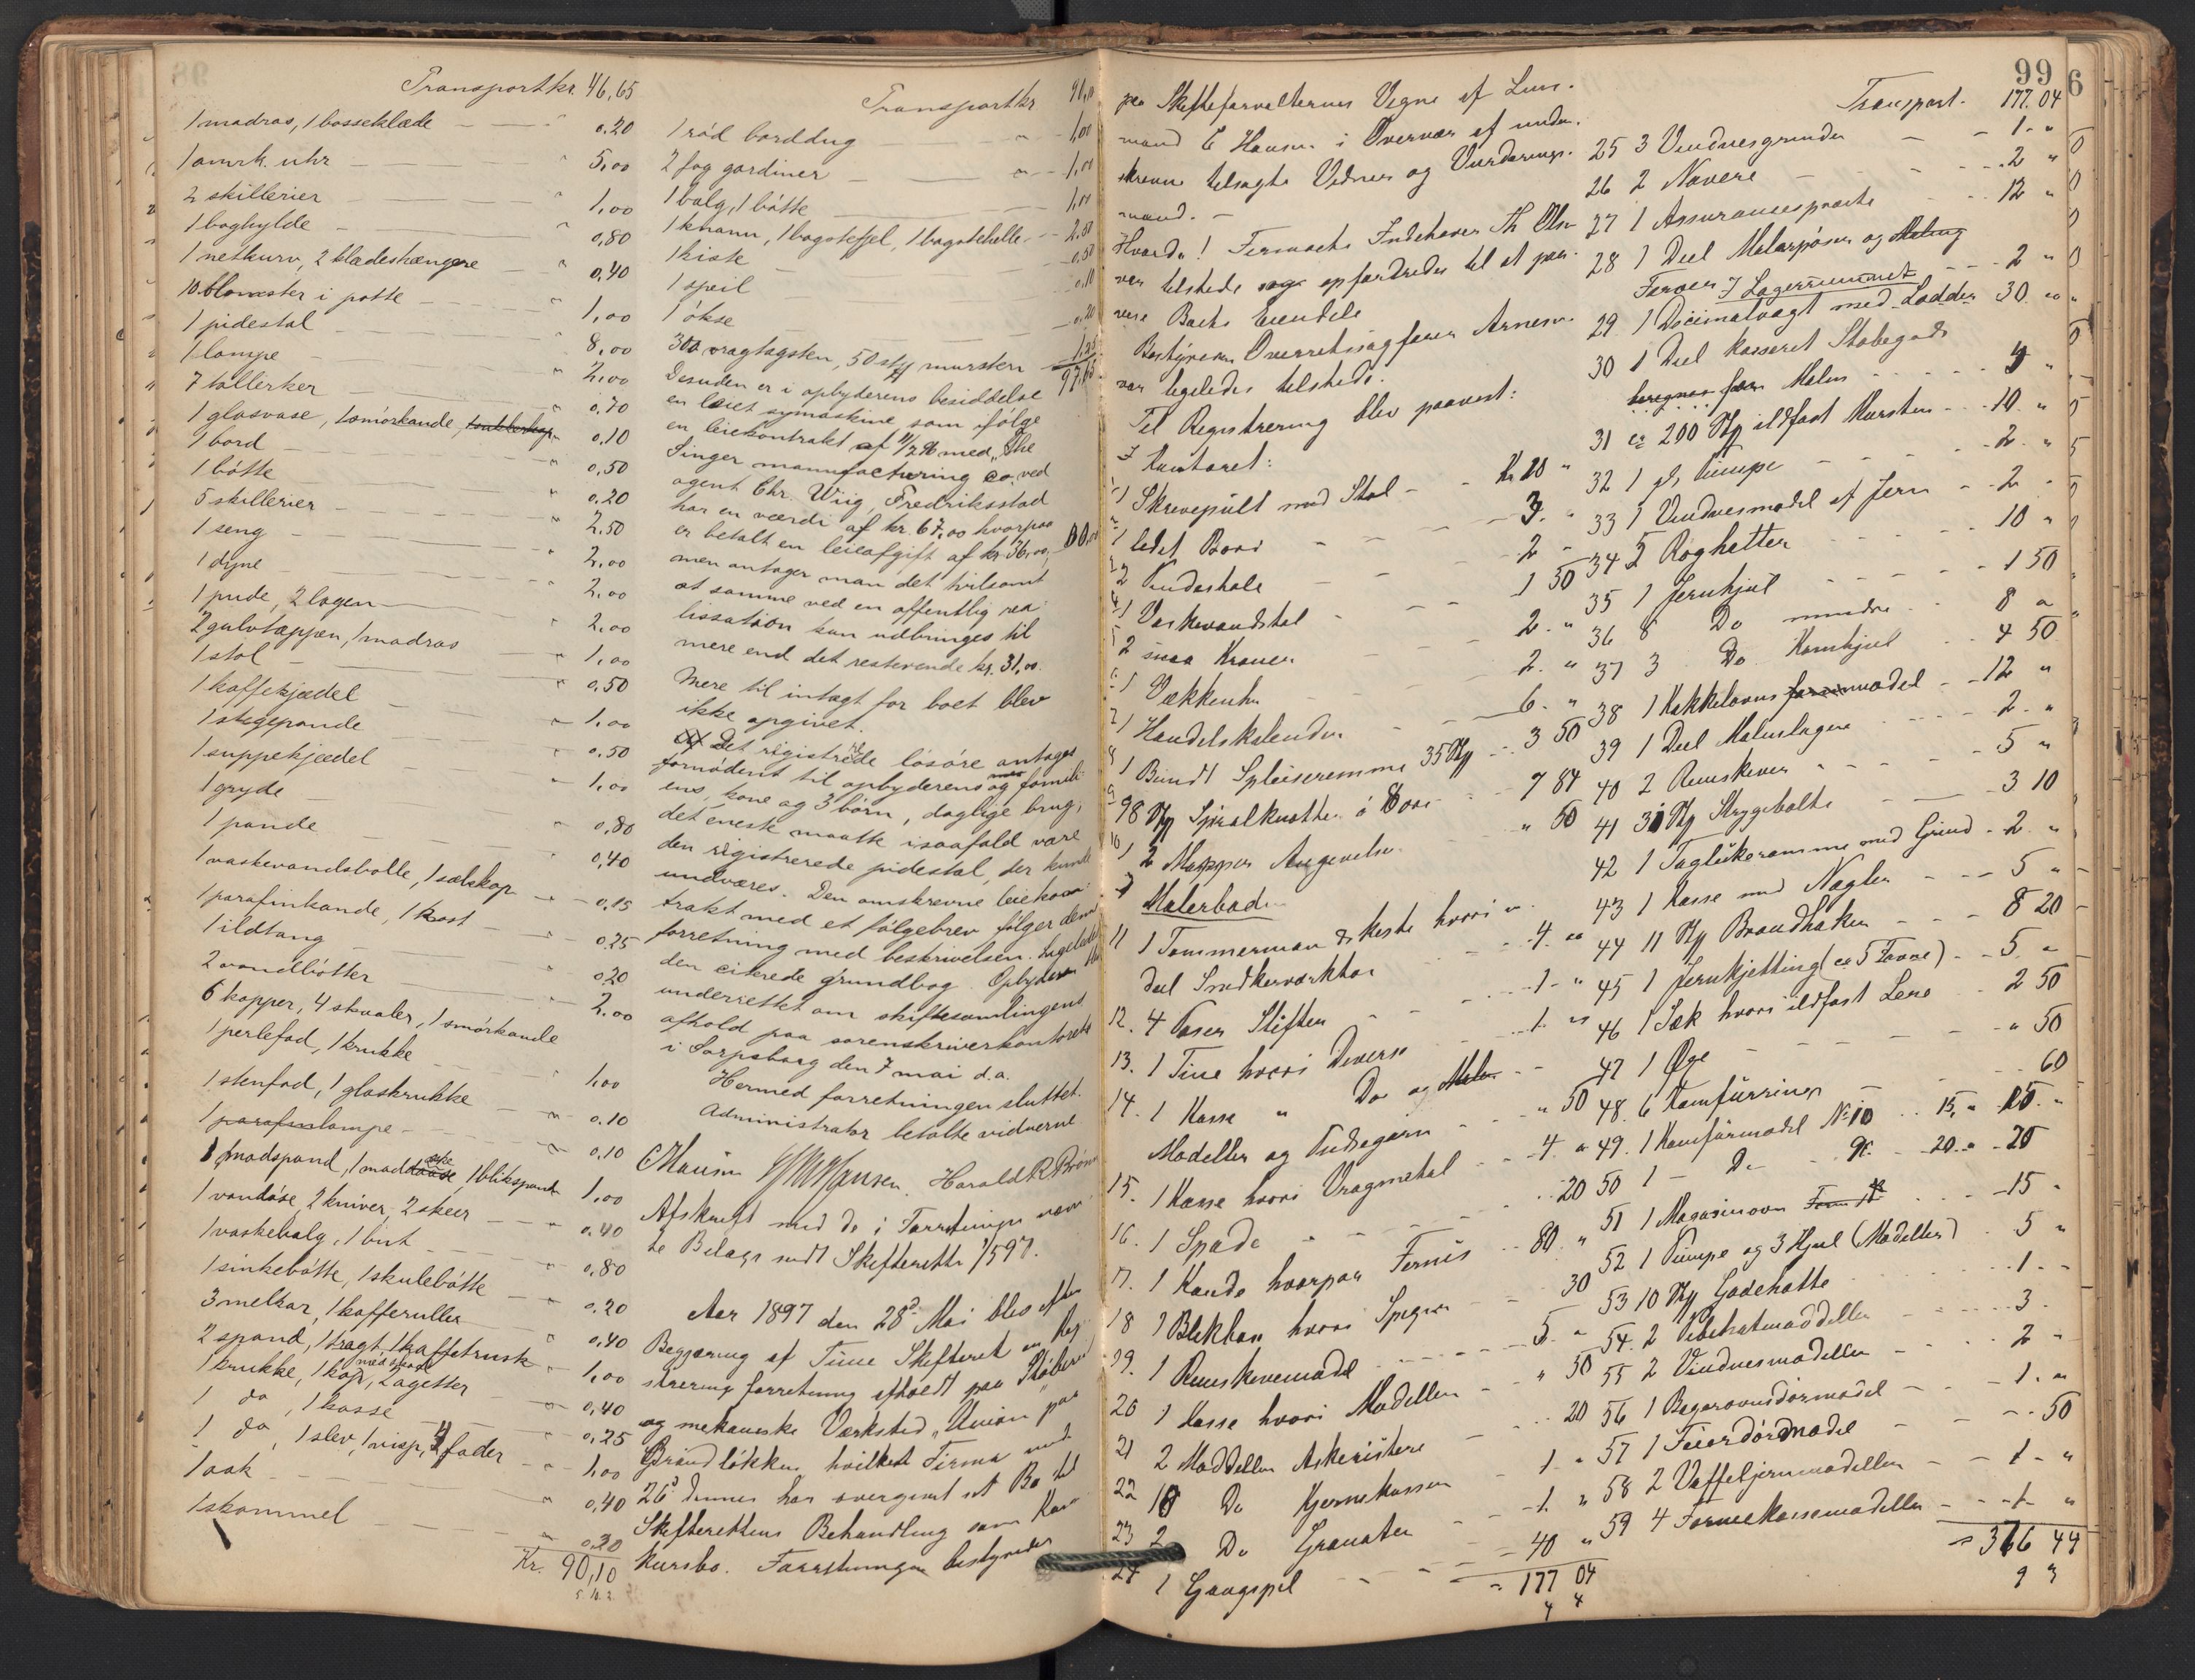 Transport kr. 46,65
1 madras, 1 bosseklæde " 0.20
1 amrk. uhr " 5,00
2 skillerier 1,00
1 boghylde " 0,80
1 netkurv, 2 klædeshængere " 0,40
10 blomster i potte " 1,00
1 pidestal " 8,00
1 lampe " 2,00
7 tallerker " 0,70
1 glasvase, 1 smörkande, " 0,10
1 bord " 0,50
1 bótte " 0.20
5 skillerier " 2.50
1 seng " 2,00
1 dyne " 2,00
1 pude, 2 lagen " 2,00
2 gulvtæppen, 1 madras " 1,00
1 stol " 0,50
1 kaffekjædel " 1,00
1 stegepande " 0.50
1 suppekjædel " 1,00
1 gryde
1 pande " 0,80
" 0,40
1 vaskevandsbolle, 1 sælskap " 0,15
1 parafinkande, 1 kost " 0,25
1 ildtang " 0,20
2 vandbótter " 2,00
6 kopper, 4 skaaler, 1 smörkande
1 perlefad, 1 krukke " 1,00
1 stenfad, 1 glaskrukke " 0.10
1 parafinlampe " 0,10
1 madspand, 1 madæske, 1 blikspand 1,00
1 vandöse, 2 kniver, 2 skeer " 0.40
1 vaskebalg, 1 " 0,80
1 sinkebótte, 1 skulebótte " 0.20
3 melkar, 1 kafferuller " 0,40
2 spand, 1 tragt, 1 kaffetrusk " 1,00
1 krukke, 1 kop, 2 agetter " 0,40
1 do, 1 kasse " 0,25
1 do, 1 slev, 1 visp, 4 fader " 1,00
1 aak " 0,40
1 skammel " 0.20
Kr. 90,10
Transport kr
1 röd borddug " 1,00
2 fag gardiner " 1,00
1 balg, 1 bótte 1,00
1 knann, 1 bagstefjel, 1 bagstehelle 2.80
1 kiste 0,50
1 speil 0,10
1 ökse 0,20
300 vragtagsten, 50 stk mursten 1,25
97,15
Desuden er i opbyderens besiddelse
en leiet symaskine, som ifölge
en leiekontrakt af 11/2 96 med „The
Singer manufacturing co. ved
agent Chr. Wiig, Fredriksstad
har en værdi af kr. 67,00 hvorpaa
er betalt en leieafgift af kr. 36,00,
men antager man det tvilsomt
at samme ved en offentlig rea-
lisation kan udbringes til
mere end det resterende kr. 31,00.
Mere til intægt for boet blev
ikke opgivet.
Det registrerede lösöre antages
fornödent til opbyderens og famili-
ens, kone og 3 börn, daglige brug,
det eneste maatte isaafald være
den registrerede pidestal, der kunde
undværes. Den omskrevne leiekon-
trakt med et fölgebrev fölger denne
forretning med beskrivelsen. Ligeledes
den citerede grundbog. Opbyderen blev
underrettet om skiftesamlingens
afhold paa sorenskriverkontoret
i Sarpsborg den 7 mai d.a.
Hermed forretningen sluttet.
Administrator betalte vidnerne
Harald R Brönn
Afskrift med de i Forretningen nævn
te Bilage sendt Skifteretten 1/5 97.
Aar 1897 den 28d Mai blev efter
Begjæring af Tune Skifteret en Reg
strering forretning afholdt paa Stöberi
og mekaniske Værksted „Union" paa
Grindlökken, hvilket Firma under
26d dennes har overgivet sit Bo til
Skifterettens Behandling som Kon
kursbo. Forretningen bestyredes
99
paa Skifteforvalterens Vegne af Lens-
mand E Hansen i Overvær af under-
skrevne tilsagte Vidner og Vurderings-
mænd. -
Hvorda! Firmaets Indehaver Th Olsen
var tilstede og opfordredes til at paa-
vise Boets Eiendele
Bestyreren Overretssagförer Arnesen
var ligeledes tilstede.
Til Registrering blev paavist:
I Kontoret:
1 1 Skrivepult med Stol Kr 20 "
2 1 lidet Bord 3. "
3 2 Pindestole 2 "
4 1 Vaskevandstel 1 50
5 2 smaa Kraner 2. "
6 1 Vækkeuhr 2. "
7 1 Handelskalender 6. "
8 1 Bundt Spleiseremme 35 Stk 3 50
9 98 Stk Spiralknotter á 8 öre 7 84
10 2 Mapper Angivelser " 50
I Malerbod
11 1 Tömmermandskiste hvori en
del Snedkerværktöi 4. "
12. 4 Poser Stifter 1. "
13. 1 Tine hvori Diverse 1. "
14. 1 Kasse " Do og
Modeller og Indsegarn " 50
15. 1 Kasse hvori Vragmetal 4. "
16. 1 Spade 20
17. 1 Kande hvorpaa Fernis 80 "
18 1 Blikboks hvori Spiger 30
19. 1 Remskivemodel 5. "
20 1 Kasse hvori Modeller " 50
21 2 Moddeller Askeristere 20
22 18 Do Kjernekasser 1. "
23 2 Do Granater 1. "
24 1 Gangspil 40 "
177 04
Transport. 177.04
25 3 Vinduesgrinder 1. "
26 2 Navere 2 "
27 1 Assuranseprote 12 "
28 1 Deel Malerpöser og
Farver I Lagerrummet 2 "
29 1 Decimalvægt med Lodder 30. "
30 1 Deel kasseret Stobegods
beregnes som Malm 4 "
31 ca 200 Stk ildfast Mursten 10. "
32 1 Pumpe 2. "
33 1 Vinduesmodel af Jern 2 "
34 5 Röghetter 10 "
35 1 Jernhjul 1 50
36 8 Do mindre 8 "
37 3 Do Kamhjul 4 50
38 1 Kakkelovnsmodel 12 "
39 1 Deel Malmslagere 2. "
40 2 Remskiver 5 "
41 31 Stk Strygebolte 3 10
42 1 Taglukeramme med Grind 2. "
43 1 Kasse med Nagler 5 "
44 11 Stk Brandhaker 8 20
45 1 Jernkjetting (ca 5 Favne) 5 "
46 1 Sæk hvori ildfast Lere 2 50
47 1 Öxe " 50
48. 6 Komfürringer 60
49. 1 Komfürmodel No 10 15. " 15. "
50 1 — Do 9. 20. " 20
51 1 Magasinovn 15 "
52 1 Pumpe og 3 Hjul (Modeller) 5 "
53 10 Stk Godehatte 1. "
54. 2 Pibehatmoddeller 3.
55 2 Vinduesmodeller 2 "
56 1 Bagerovnsdörmodel 1. "
57 1 Feierdörsmodel 50
58 2 Vaffeljernmodeller 1 "
59 4 Formekassemodeller 1 "
366 44